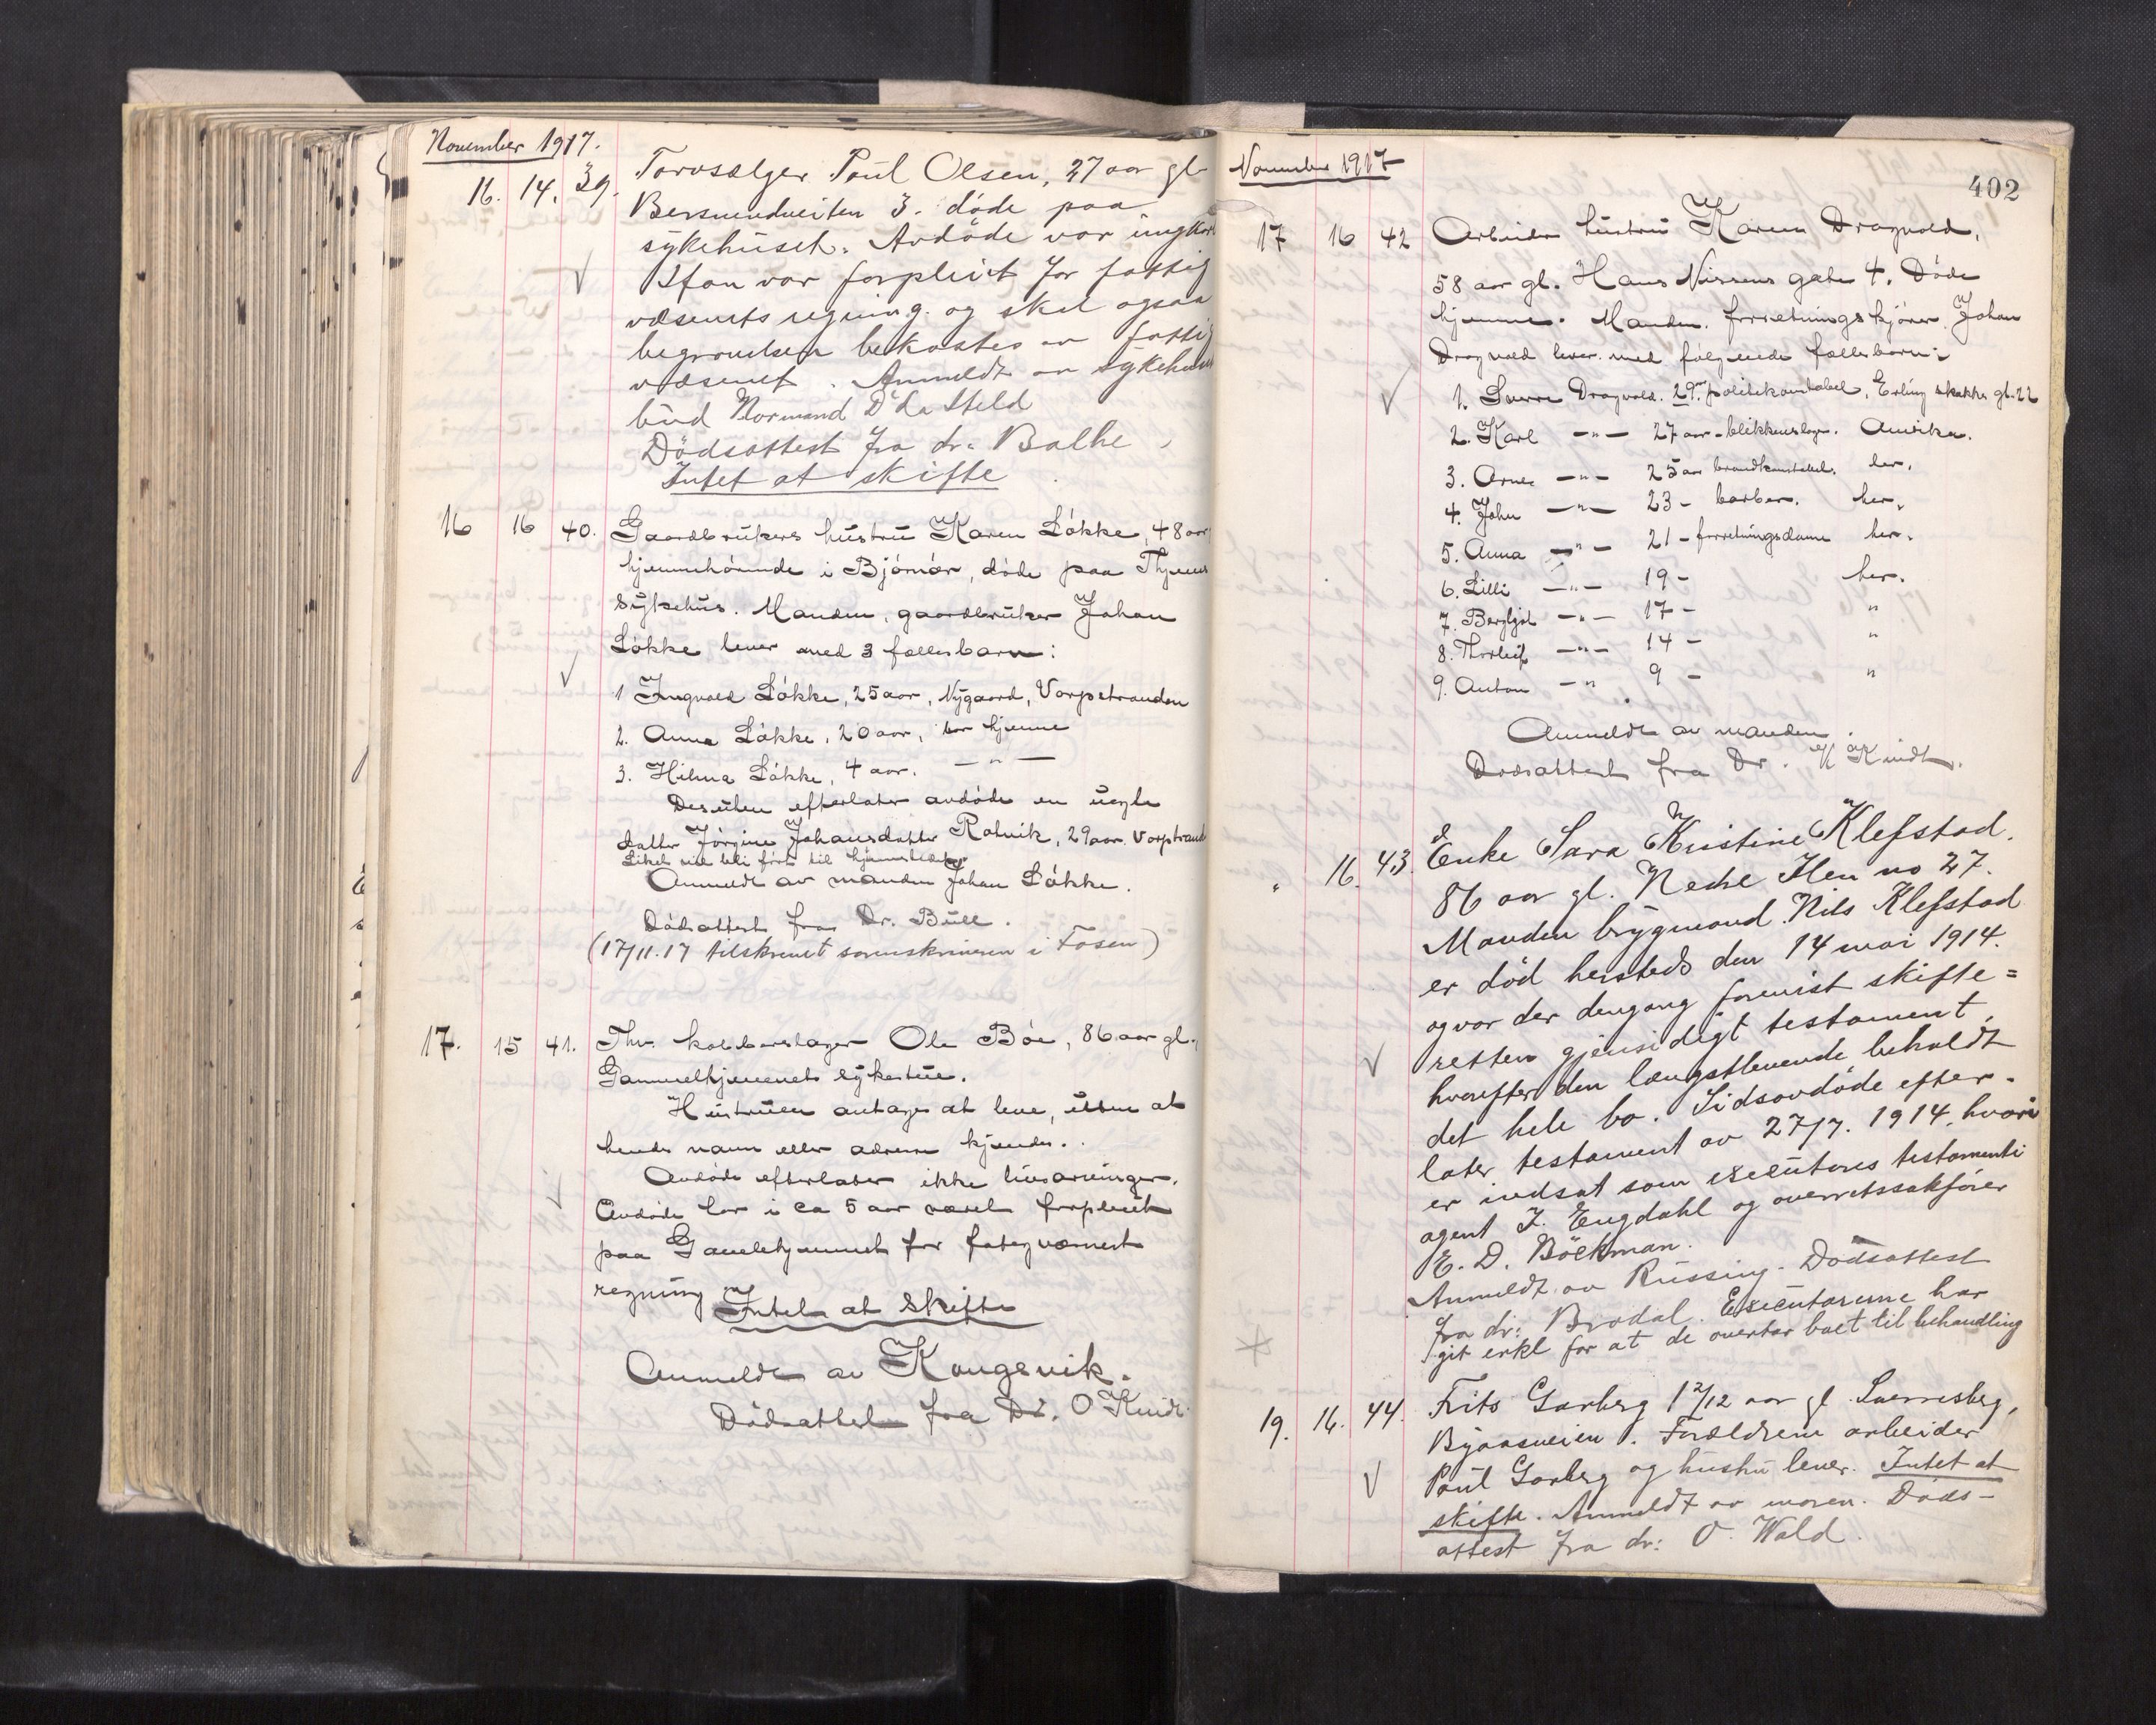 November 1917.
16. 14. 39. Torvsælger Paul Olsen, 27 aar gl.
Bersvendveiten 3. døde paa
sykehuset. Avdøde var ungkar
Han var forpleiet for fattig
væsenets regning. og skal ogsaa
begravelsen bekostes av fattig
væsenet. Anmeldt av sykehus
bud Normand
Dødsattest fra dr. Balke.
Intet at skifte
16 16 40. Gaardbrukers hustru Karen Løkke, 48 aar
hjemmehørende i Bjørnør, døde paa Thjems
Sykehus. Manden, gaardbruker Johan
Løkke lever med 3 fællesbarn:
1 Ingvald Løkke, 25 aar, Nygaard, Vorpstranden
2. Anna Løkke, 20 aar, bor hjemme
3. Hilma Løkke, 4 aar. — " —
Desuten efterlater avdøde en uegte
datter Jørgine Johansdatter Ratvik, 29 aar. Vorpstrand
Liket vil bli ført til hjemstedet
Anmeldt av manden Johan Løkke.
Dødsattest fra Dr. Bull.
(17/11.17 tilskrevet sorenskriveren i Fosen)
17. 15 41. Fhv. kobberslager Ole Bøe, 86 aar gl.,
Gammelhjemmets sykestue.
Hustruen antages at leve, uten at
hendes navn eller adresse kjendes.
Avdøde efterlater ikke livsarvinger.
Avdøde har i ca 5 aar været forpleiet
paa Gamlehjemmet for fattigvæsenets
regning Intet at skifte
Anmeldt av Kongsvik.
Dødsattest fra Dr. O Kindt.
November 1917
402
17 16 42 Arbeider hustru Karen Dragvold,
58 aar gl. Hans Nissens gate 4. Døde
hjemme. Manden. forretningskjører Johan
Dragvold lever med følgende fællesbarn:
1. Sverre Dragvold. 29 aar politikonstabel, Erling Skakkes gt. 22
2. Karl — " — 27 aar - blikkenslager. Amerika.
3. Arne — " — 25 aar brandkonstabel. her.
4. John — " — 23 - barber. her.
5. Anna — " — 21 - forretningsdame her.
6. Lilli — " — 19 - her.
7. Bergljot — " — 17 - "
8. Thorleif — " — 14 - "
9. Anton — " 9 - "
Anmeldt av manden.
Dødsattest fra Dr. K Kindt.
" 16. 43. Enke Sara Kristine Klefstad.
86 aar gl. Nedre Ilen no 27.
Manden brygmand Nils Klefstad
er død hersteds den 14 mai 1914.
og var der dengang forevist skifte=
retten gjensidigt testament,
hvorefter den længstlevende beholdt
det hele bo. Sidstavdøde efter-
later testament av 27/7. 1914. hvori
er indsat som executores testamenti
agent J. Engdahl og overretssakfører
E. D. Bøckman.
Anmeldt av Russing. Dødsattest
fra dr: Brodal. Executorerne har
git erkl for at de overtar boet til behandling
19. 16. 44. Frits Garberg 1 2/12 aar gl Sverresborg,
Byaasveien. Forældrene arbeider
Paul Garberg og hustru lever. Intet at
skifte. Anmeldt av moren. Døds-
attest fra dr: O. Wald.